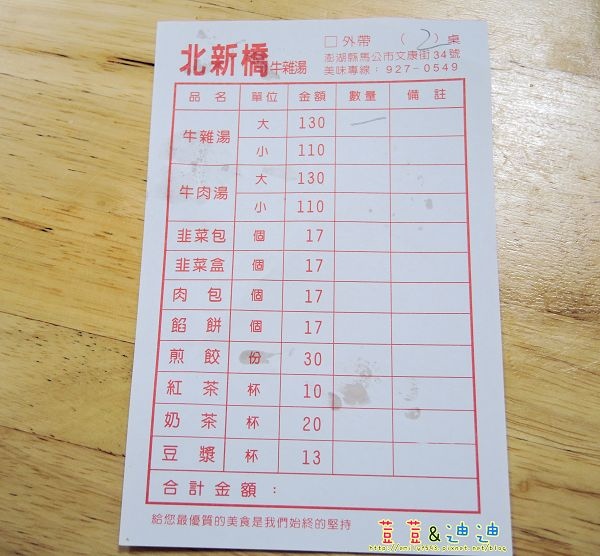 北新橋牛雜湯
□外帶 (2)桌
澎湖縣馬公市文康街34號
美味專線：927-0549
品名 單位 金額 數量 備註
牛雜湯 大 130 一
小 110
牛肉湯 大 130
小 110
韭菜包 個 17
韭菜盒 個 17
肉包 個 17
餡餅 個 17
煎餃 份 30
紅茶 杯 10
奶茶 杯 20
豆漿 杯 13
合計金額：
給您最優質的美食是我們始終的堅持
荳荳&迪迪